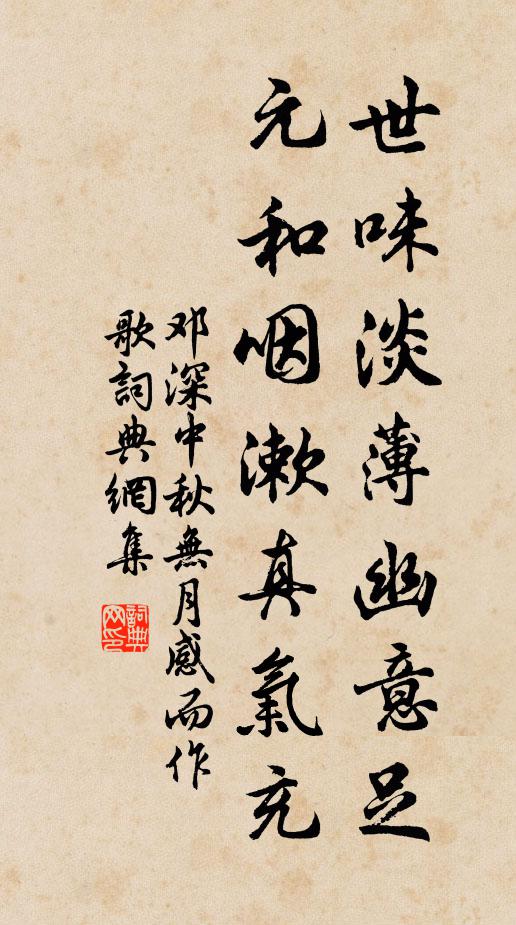 世味淡薄幽意足
元和咽漱真氣充
邓深中秋無月感而作
歌詞典網集
詞典
网印